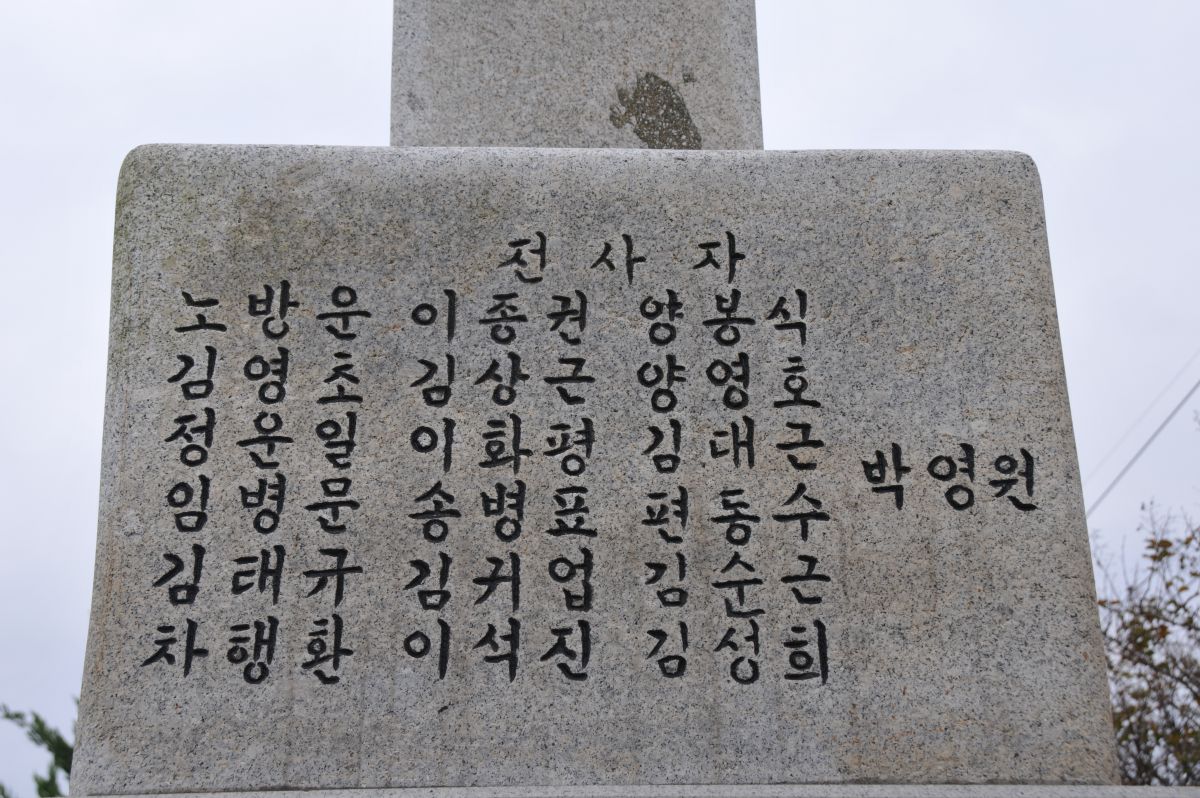 전 사 자
노방운 이종권 양봉식
김영초 김상근 양영호
정운일 이화평 김대근 박영원
임병문 송병표 편동수
김태규 김귀업 김순근
차행환 이석진 김성희